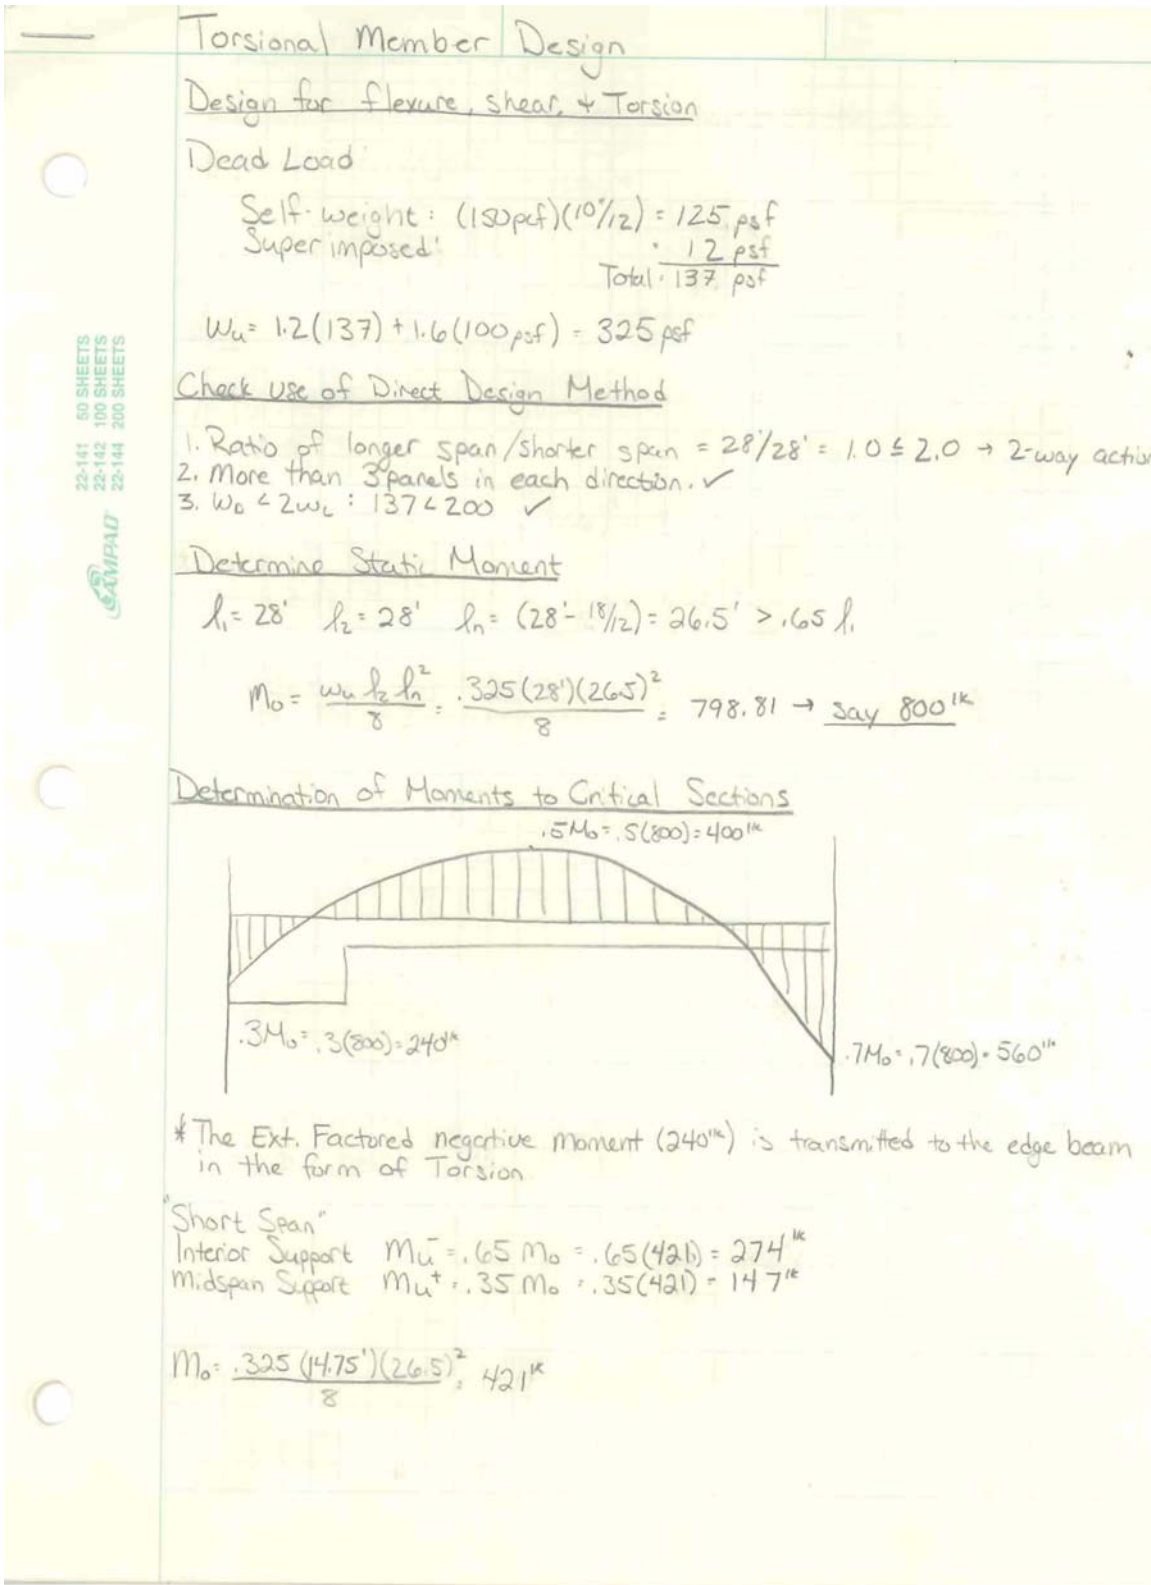 Torsional Member Design
Design for flexure, shear, + Torsion
Dead Load
Self-weight: (150pcf)(10"/12) = 125 psf
Superimposed: 12 psf
Total: 137 psf
Wu = 1.2(137) + 1.6(100psf) = 325 psf
22-141 50 SHEETS
22-142 100 SHEETS
22-144 200 SHEETS
AMPAD
Check use of Direct Design Method
1. Ratio of longer span/shorter span = 28'/28' = 1.0 ≤ 2.0 → 2-way action
2. More than 3 panels in each direction. ✓
3. WD < 2WL : 137 < 200 ✓
Determine Static Moment
l₁ = 28' l₂ = 28' ln = (28' - 18/12) = 26.5' > .65 l₁
Mo = wu l₂ ln²/8 = .325(28')(26.5)²/8 = 798.81 → say 800'k
Determination of Moments to Critical Sections
.5Mo = .5(800) = 400'k
.3Mo = .3(800) = 240'k
.7Mo = .7(800) = 560'k
* The Ext. Factored negative moment (240'k) is transmitted to the edge beam
in the form of Torsion
"Short Span"
Interior Support Mu⁻ = .65 Mo = .65(421) = 274'k
Midspan Support Mu⁺ = .35 Mo = .35(421) = 147'k
Mo = .325 (14.75')(26.5)²/8 = 421'k